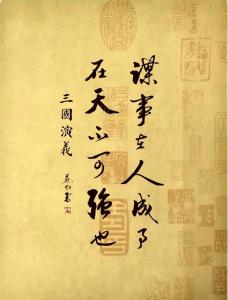 谋事在人成事
在天不可强也
三國演義